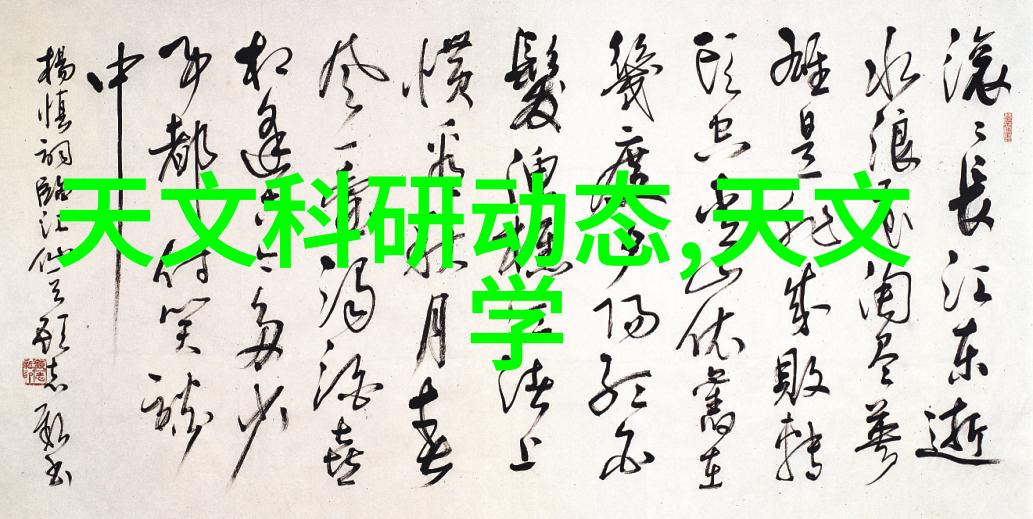 天文科研动态,天文
学
滚〻長江东逝
水浪花淘尽英
雄是非成敗轉
頭空青山依舊在
幾度夕阳红白
髮渔樵江渚上
惯看秋月春
风一壶浊酒喜
相逢古今多少
事都付笑谈
中
楊慎詞臨江仙